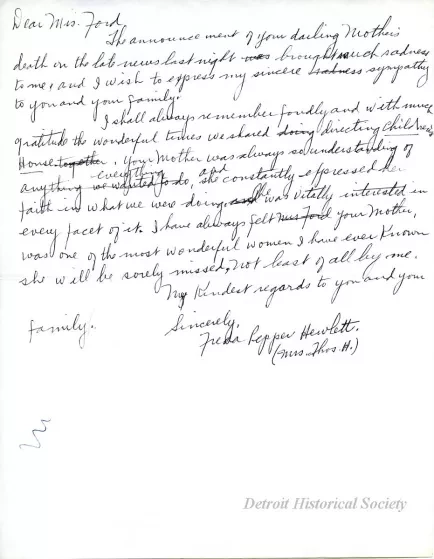 Dear Mrs. Ford,
The announcement of your darling Mother's
death on the late news last night was brought such sadness
to me, and I wish to express my sincere sadness sympathy
to you and your family.
I shall always remember fondly and with much
gratitude the wonderful times we shared doing directing Child
House together, your Mother was always so understanding of
anything everything we wanted to do, and she constantly expressed her
faith in what we were doing, and She was vitally interested in
every facet of it. I have always felt Mrs Ford your Mother,
was one of the most wonderful women I have ever known
she will be sorely missed, not least of all by me.
My Kindest regards to you and your
family.
Sincerely,
Freda Pepper Hewlett.
(Mrs. Thos. H.)
Detroit Historical Society